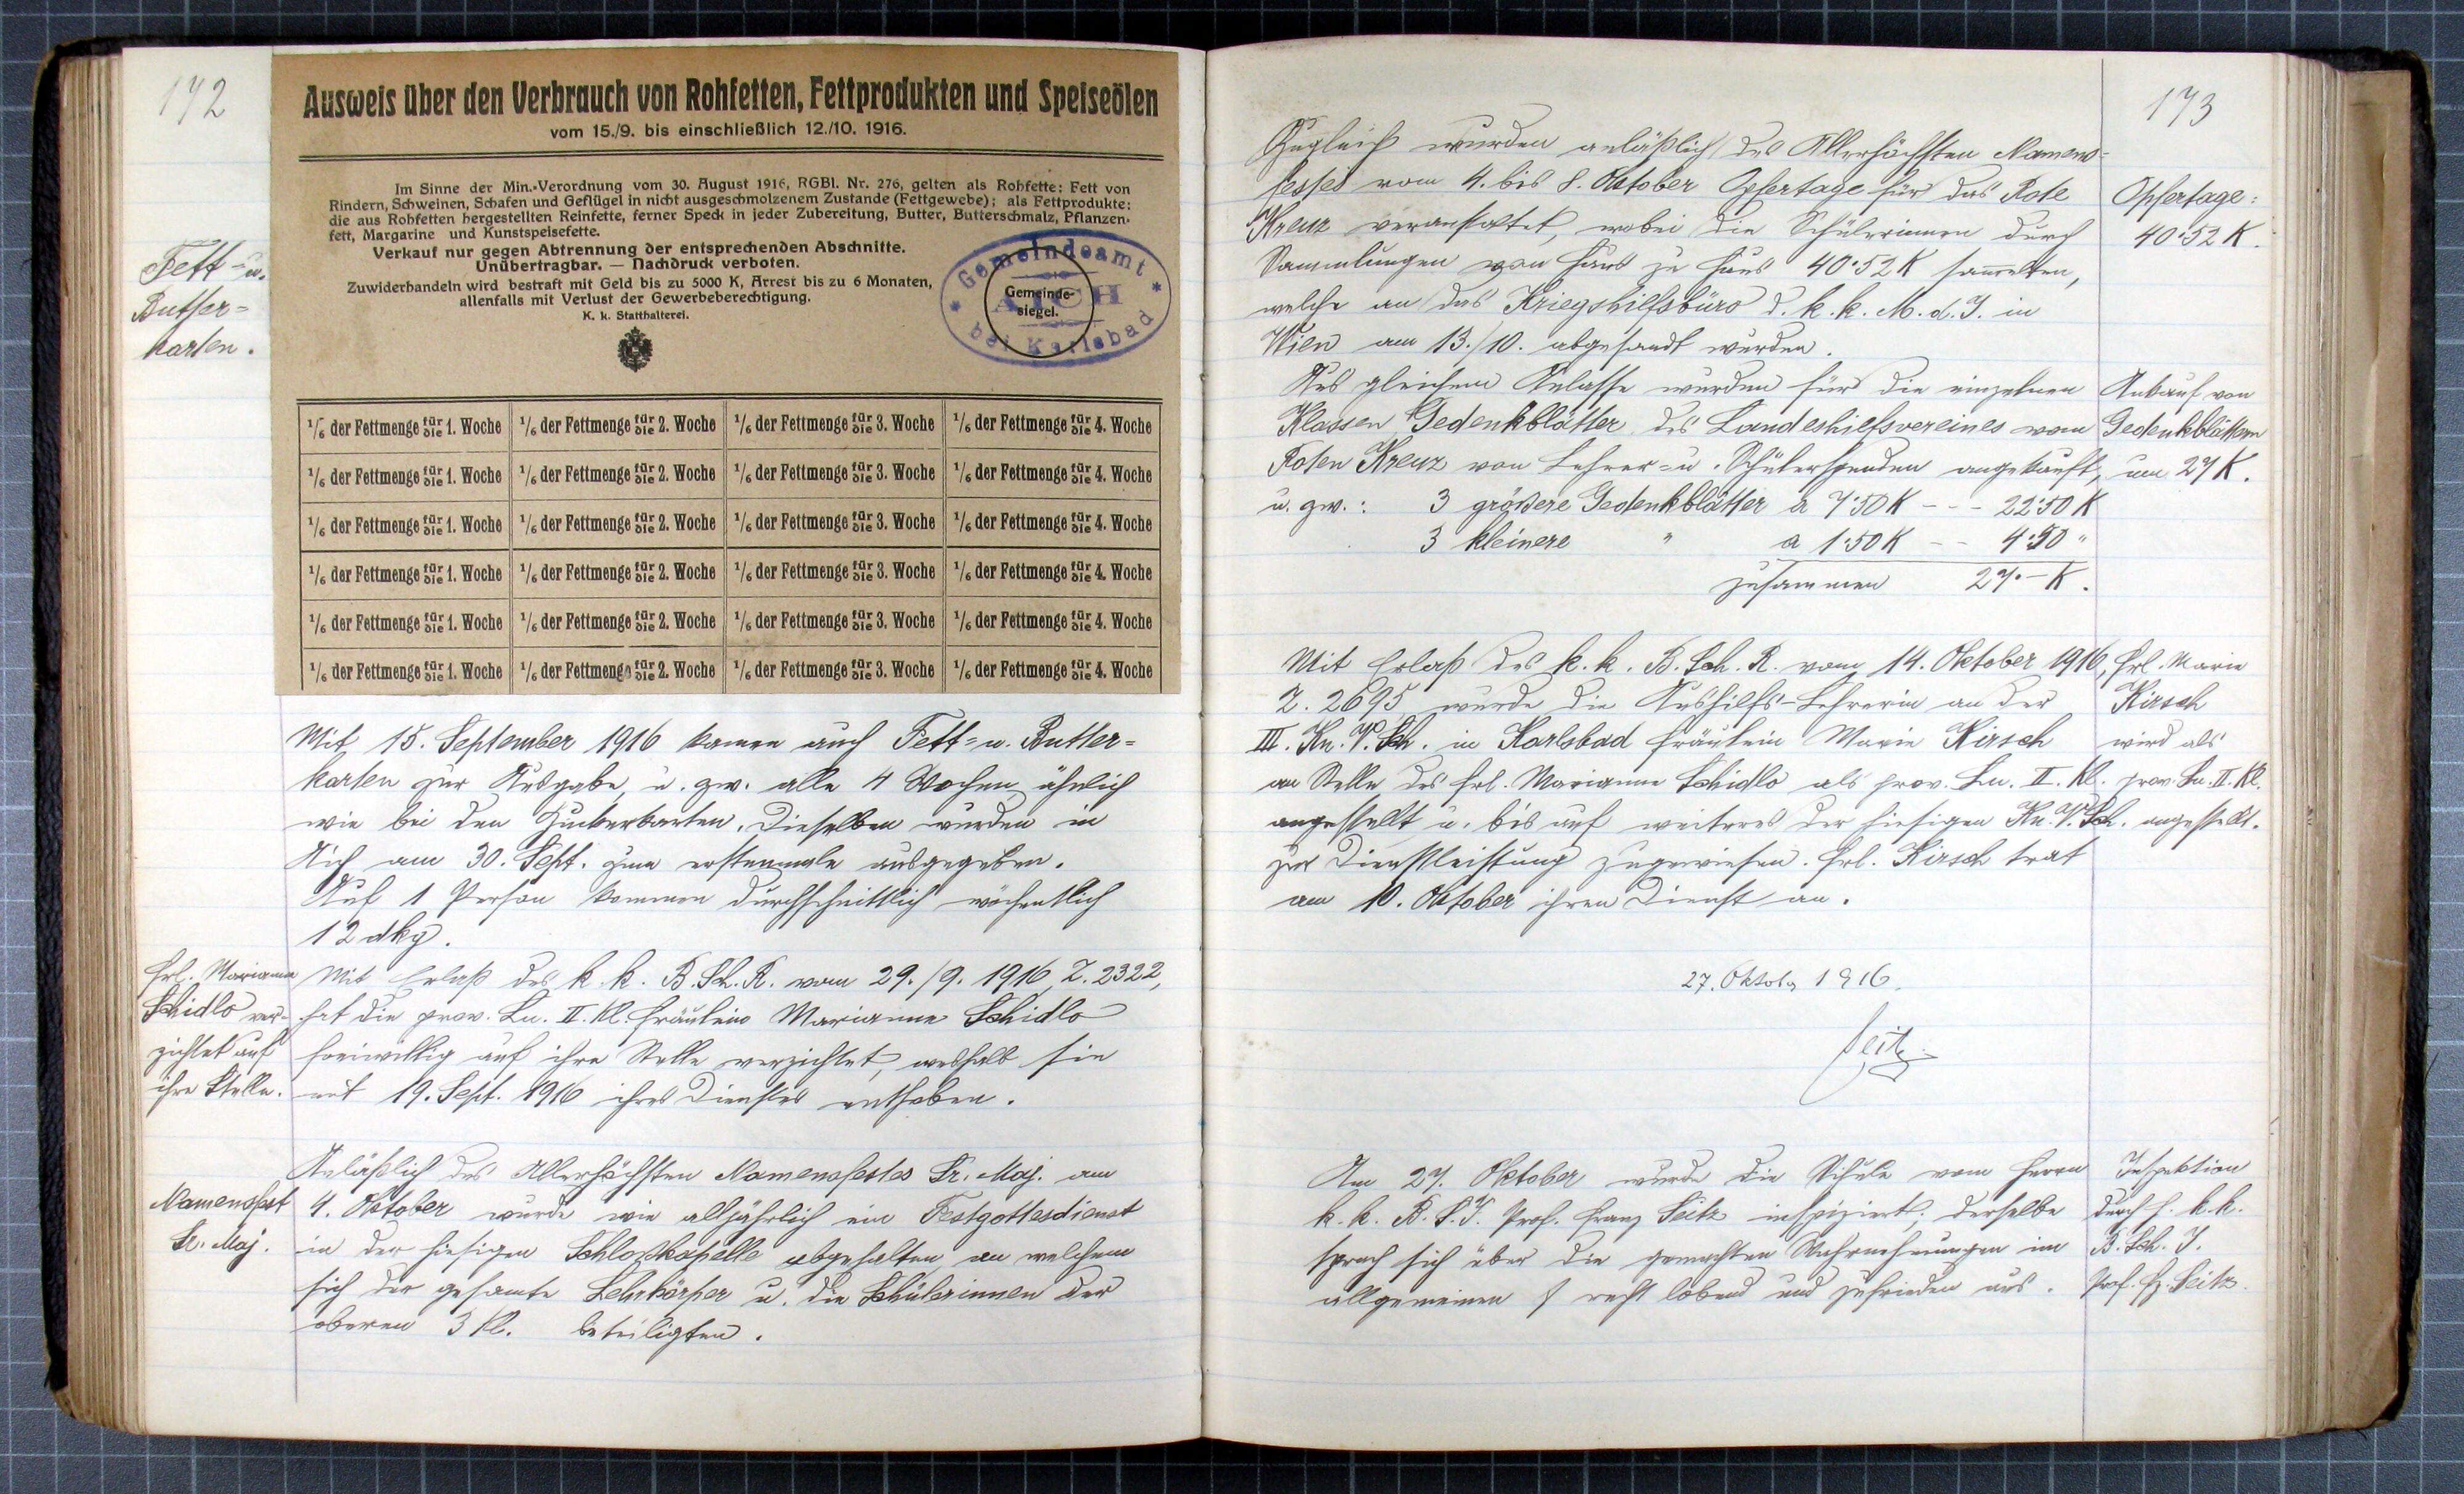 172
Ausweis über den Verbrauch von Rohfetten, Fettprodukten und Speiseölen
vom 15./9. bis einschließlich 12./10. 1916.
Im Sinne der Min.-Verordnung vom 30. August 1916, RGBl. Nr. 276, gelten als Rohfette: Fett von
Rindern, Schweinen, Schafen und Geflügel in nicht ausgeschmolzenem Zustande (Fettgewebe); als Fettprodukte:
die aus Rohfetten hergestellten Reinfette, ferner Speck in jeder Zubereitung, Butter, Butterschmalz, Pflanzen-
fett, Margarine und Kunstspeisefette.
Verkauf nur gegen Abtrennung der entsprechenden Abschnitte.
Unübertragbar. — Nachdruck verboten.
Zuwiderhandeln wird bestraft mit Geld bis zu 5000 K, Arrest bis zu 6 Monaten,
allenfalls mit Verlust der Gewerbeberechtigung.
K. k. Statthalterei.
Gemeindeamt
AICH
bei Karlsbad
Gemeinde-
siegel.
1/6 der Fettmenge für die 1. Woche 1/6 der Fettmenge für die 2. Woche 1/6 der Fettmenge für die 3. Woche 1/6 der Fettmenge für die 4. Woche
1/6 der Fettmenge für die 1. Woche 1/6 der Fettmenge für die 2. Woche 1/6 der Fettmenge für die 3. Woche 1/6 der Fettmenge für die 4. Woche
1/6 der Fettmenge für die 1. Woche 1/6 der Fettmenge für die 2. Woche 1/6 der Fettmenge für die 3. Woche 1/6 der Fettmenge für die 4. Woche
1/6 der Fettmenge für die 1. Woche 1/6 der Fettmenge für die 2. Woche 1/6 der Fettmenge für die 3. Woche 1/6 der Fettmenge für die 4. Woche
1/6 der Fettmenge für die 1. Woche 1/6 der Fettmenge für die 2. Woche 1/6 der Fettmenge für die 3. Woche 1/6 der Fettmenge für die 4. Woche
1/6 der Fettmenge für die 1. Woche 1/6 der Fettmenge für die 2. Woche 1/6 der Fettmenge für die 3. Woche 1/6 der Fettmenge für die 4. Woche
Fett- u.
Butter-
karten.
Mit 15. September 1916 kamen auch Fett- u. Butter-
karten zur Ausgabe, u. zw. alle 4 Wochen, ähnlich
wie bei den Zuckerkarten. Dieselben wurden in
Aich am 30. Sept. zum erstenmale ausgegeben.
Auf 1 Person kommen durchschnittlich wöchentlich
12 dkg.
Frl. Marianne
Schidlo ver-
zichtet auf
ihre Stelle.
Mit Erlaß des k. k. B. Sch. R. vom 29./9. 1916, Z. 2322,
hat die prov. Ln. II. Kl. Fräulein Marianne Schidlo
freiwillig auf ihre Stelle verzichtet, weshalb sie
mit 19. Sept. 1916 ihres Dienstes enthoben.
Namensfest
Sr. Maj.
Anläßlich des Allerhöchsten Namensfestes Sr. Maj. am
4. Oktober wurde wie alljährlich ein Festgottesdienst
in der hiesigen Schloßkapelle abgehalten, an welchem
sich der gesamte Lehrkörper u. die Schülerinnen der
oberen 3 Kl. beteiligten.
173
Zugleich wurden anläßlich des Allerhöchsten Namens-
festes vom 4. bis 8. Oktober Opfertage für das Rote
Kreuz veranstaltet, wobei die Schülerinnen durch
Sammlungen von Haus zu Haus 40·52 K sammelten,
welche an das Kriegshilfsbüro d. k. k. M. d. I. in
Wien am 13./10. abgesandt wurden.
Opfertage:
40·52 K.
Aus gleichem Anlasse wurden für die einzelnen
Klassen Gedenkblätter des Landeshilfsvereines vom
Roten Kreuz von Lehrer- u. Schülerspenden angekauft,
u. zw.: 3 größere Gedenkblätter à 7·50 K - - - 22·50 K
3 kleinere " à 1·50 K - - 4·50 "
zusammen 27·- K.
Ankauf von
Gedenkblättern
um 27 K.
Mit Erlaß des k. k. B. Sch. R. vom 14. Oktober 1916,
Z. 2695 wurde die Aushilfs-Lehrerin an der
III. Kn. V. Sch. in Karlsbad Fräulein Marie Kirsch
an Stelle des Frl. Marianne Schidlo als prov. Ln. II. Kl.
angestellt u. bis auf weiteres der hiesigen Kn. V. Sch.
zur Dienstleistung zugewiesen. Frl. Kirsch trat
am 10. Oktober ihren Dienst an.
Frl. Marie
Kirsch
wird als
prov. Ln. II. Kl.
angestellt.
27. Oktober 1916.
Seitz
Am 27. Oktober wurde die Schule vom Herrn
k. k. B. S. I. Prof. Franz Seitz inspiziert; derselbe
sprach sich über die gemachten Wahrnehmungen im
allgemeinen recht lobend und zufrieden aus.
Inspektion
durch H. k. k.
B. Sch. I.
Prof. Fz. Seitz.